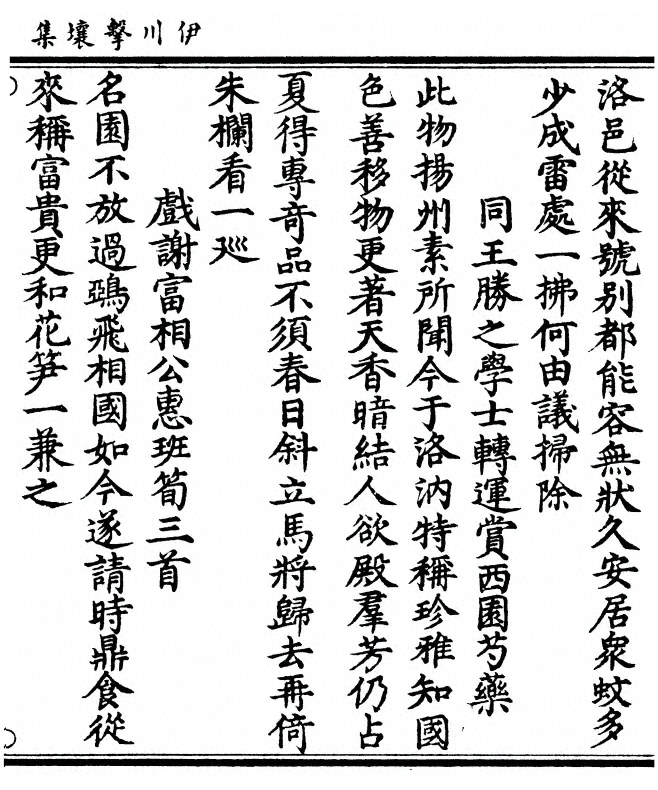 伊川擊壤集
洛邑從來號别都能容無狀久安居衆蚊多
少成雷處一拂何由議掃除
同王勝之學士轉運賞西園芍藥
此物揚州素所聞今于洛汭特稱珍雅知國
色善移物更著天香暗結人欲殿羣芳仍占
夏得專竒品不須春日斜立馬將歸去再倚
朱欄看一廵
戲謝富相公惠班筍三首
名園不放過鵶飛相國如今遂請時鼎食從
來稱富貴更和花笋一兼之